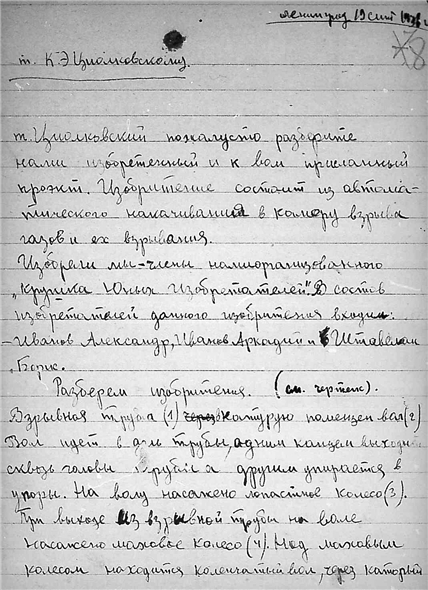 Ленинград 19 сент
т. К.Э Циолковскому.
т. Циолковский пожалусто разбирите
нами изобретенный и к вам присланный
проэкт. Изобритение состоит из автома-
тического накачивания в камеру взрыва
газов и их взрывания.
Изобрели мы-члены намиорганизованного
„Кружка Юных Изобретателей". В состав
изобретателей данного изобритения входили:
- Иванов Александр, Иванов Аркадий и Штавеман
Борис.
Разберем изобритения. (см. чертеж).
Взрывная труба (1) через катурую помещен вал (2)
Вал идет в даль трубы, адним канцем выходит
сквозь головы трубы а другим упирается в
упоры. На валу насажено лопастное колесо (3).
При выходе из взрывной трубы на вале
насажего маховое колесо (4). Над маховым
колесом находится коленчатый вал, через катарый